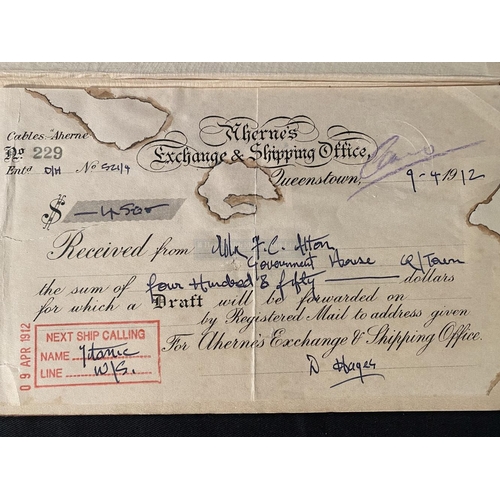 Cables "Aherne"
Aherne's
No. 229
Exchange & Shipping Office,
Entd. O/H No 521/9
Queenstown, 9-4-1912
$ 450
Received from Mr F.C. Aton
Government House Q/Town
the sum of four Hundred & fifty dollars
for which a Draft will be forwarded on
by Registered Mail to address given
For Aherne's Exchange & Shipping Office.
09 APR 1912
NEXT SHIP CALLING
NAME Titanic
LINE W/S.
D Hayes